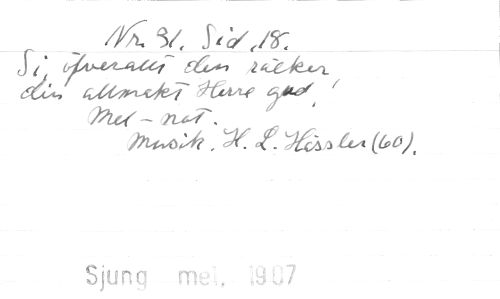 Nr. 31. Sid. 18.
Si, öfverallt den räcker
din allmakt Herre gud!
Mel-not.
Musik. H. L. Hässler (60).
Sjung mel. 1907